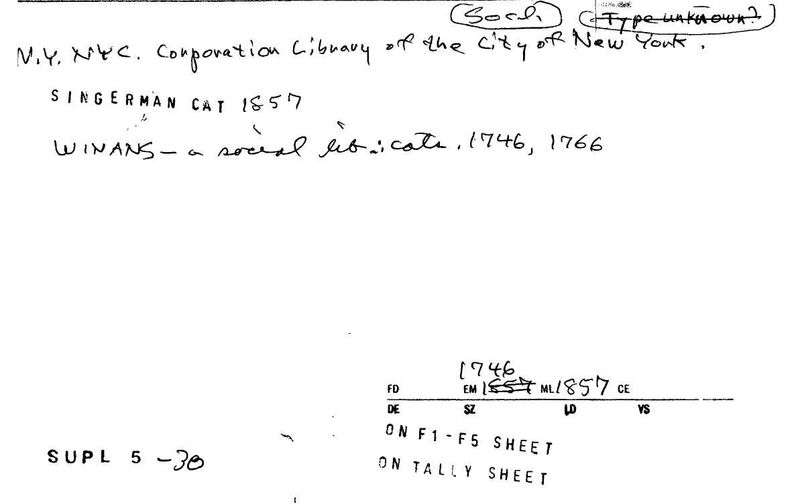 Soch. (Type unknown?)
N.Y. NYC. Corporation Library of the City of New York.
SINGERMAN CAT 1857
WINANS - a social lib.: cats. 1746, 1766
1746
FD EM 1857 ML 1857 CE
DE SZ LD VS
ON F1-F5 SHEET
SUPL 5 -30
ON TALLY SHEET